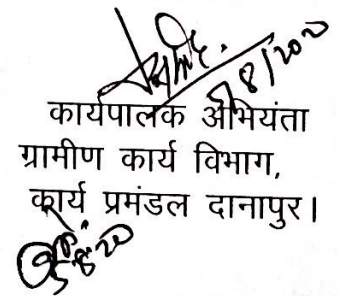 5/8/2020
कार्यपालक अभियंता
ग्रामीण कार्य विभाग,
कार्य प्रमंडल दानापुर।
5.8.20